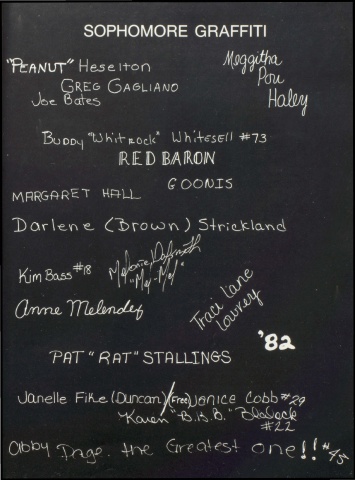 SOPHOMORE GRAFFITI
"PEANUT" Heselton
Meggitha
Pou
Haley
GREG GAGLIANO
Joe Bates
BUDDY "WhitROCK" WhiteSEll #73
RED BARON
GOONIS
MARGARET HALL
Darlene (Brown) Strickland
Kim Bass #18
"Mel-Mel"
Traci Lane
Lowrey
Anne Melendez
'82
PAT "RAT" STALLINGS
Janelle Fike (Duncan)
(Free) Janice Cobb #29
Karen "B.B.B." Blalock
#22
Abby Page. the Greatest one!! #45